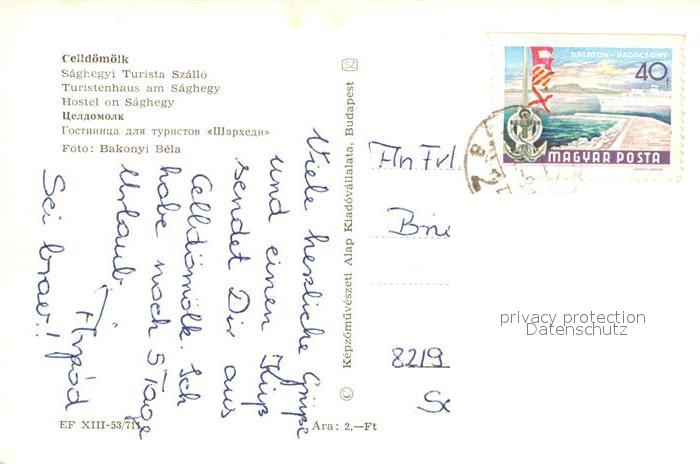 Celldömölk
Sághegyi Turista Szálló
Turistenhaus am Sághegy
Hostel on Sághegy
Целдомолк
Гостиница для туристов «Шархеди»
Foto: Bakonyi Béla
Viele herzliche Grüße
und einen Kuß
sendet Dir aus
Celldömölk. Ich
habe noch 5 Tage
Urlaub.
Árpád
Sei brav!!
EF XIII-53/711
Ára: 2,—Ft
© Képzőművészeti Alap Kiadóvállalata, Budapest
BALATON - BADACSONY
40f
MAGYAR POSTA
An Frl.
8219
privacy protection
Datenschutz